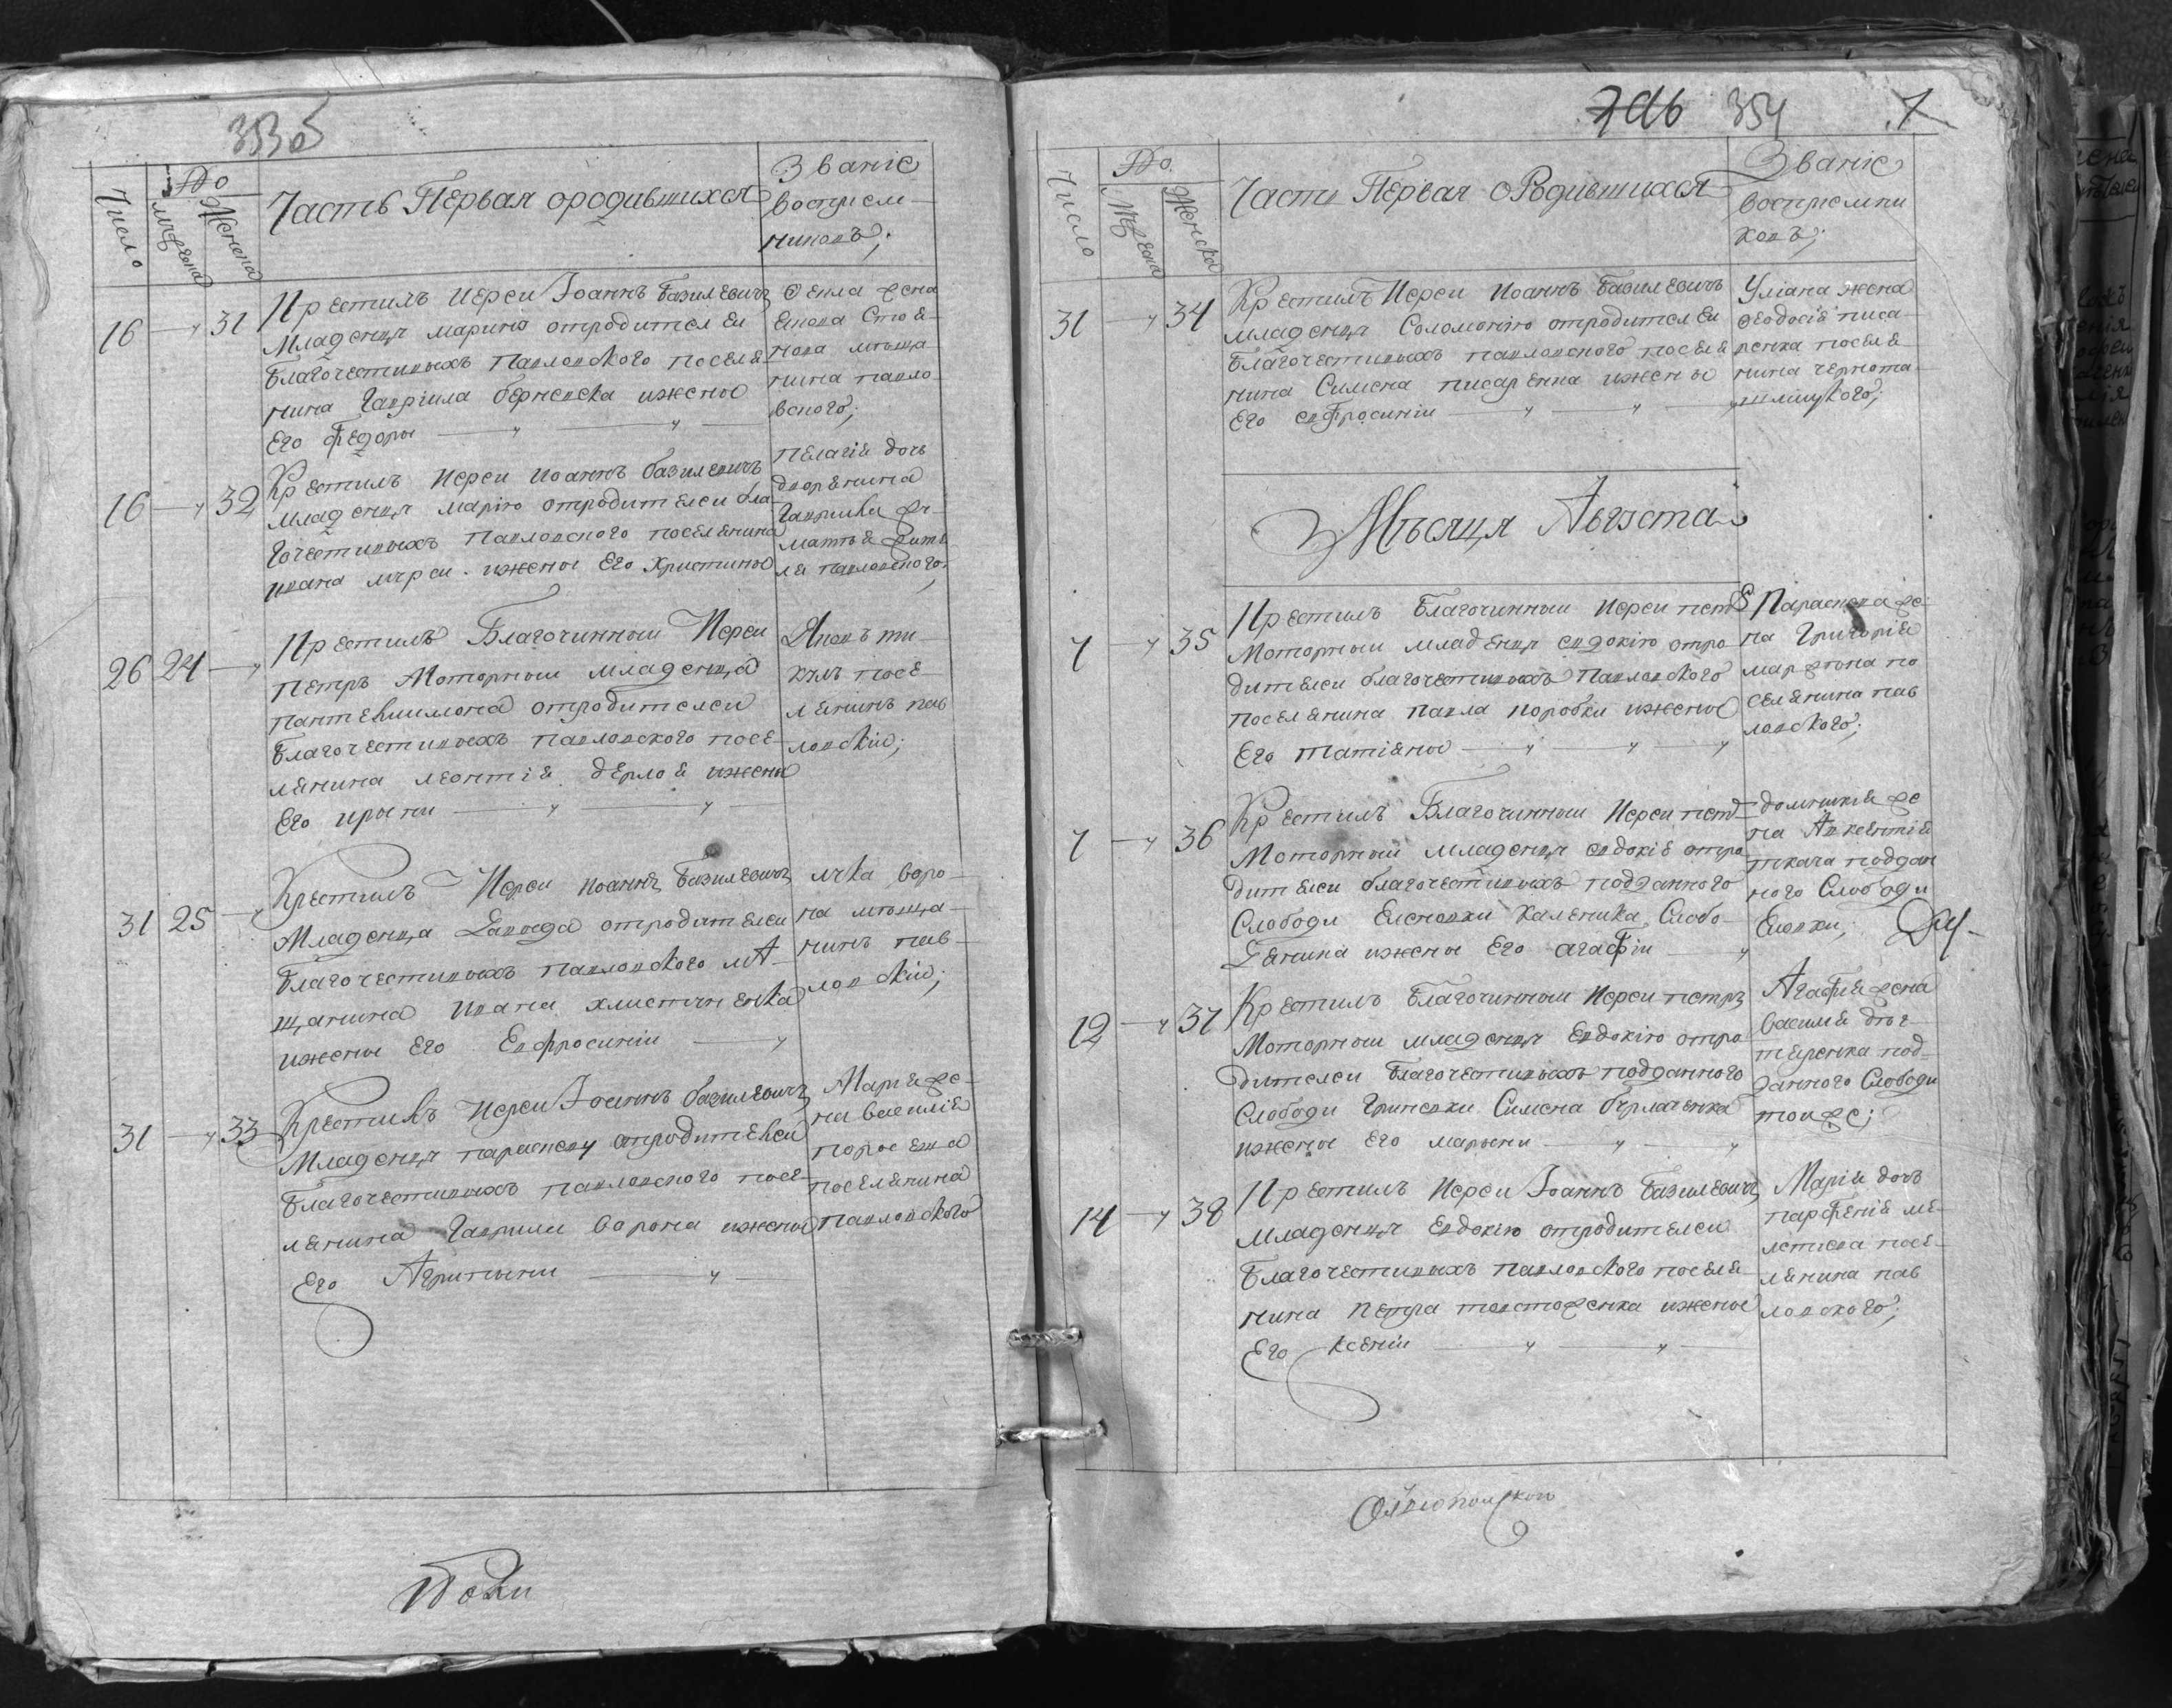 353об
Число
Мужеска
Женска
Часть Первая ородившихся
Званіе
воспріем-
никовъ;
16 — 31
Крестилъ Иерей Іоаннъ Базилевичъ
Младенця марину отродителей
Благочестивыхъ Павловского поселя
нина Гавріила
ижены
Его федоры
Фекла жена
мѣща
нина павло
вского;
16 — 32
Крестилъ Иерей Иоаннъ базилевичъ
Младенця марію отродителей бла-
гочестивыхъ Павловского поселянина
ивана ижены Его Христины
Пелагія дочь
дворянина
Гаврила
павловского;
26 24 —
Крестилъ Благочинный Иерей
Петръ Моторный Младенца
пантелиимона отродителей
Благочестивыхъ павловского посе-
лянина леонтія ижены
Его ирыни
Яковъ
посе-
лянинъ пав
ловскій;
31 25 —
Крестилъ Иерей Иоаннъ Базилевичъ
Младенца отродителей
Благочестивыхъ павловского мѣ-
щанина Ивана
ижены Его Евфросиніи
лука воро-
на мѣща-
нинъ пав-
ловскій;
31 — 33
Крестилъ Иерей Іоаннъ базилевичъ
Младенця параскеву отродителей
Благочестивыхъ павловского посе-
лянина Гаврили ворона ижены
Его Агрипыни
Марія же-
на василія
поселянина
павловского
354 7
Число
Мужеска
Женска
Часть Первая оРодившихся
Званіе
воспріемни
ковъ;
31 — 34
Крестилъ Иерей Иоаннъ Базилевичъ
младенця Соломонію отродителей
Благочестивыхъ павловского поселя
нина Симена писаренка ижены
Его евфросиніи
Уліана жена
Феодосія писа-
ренка поселя-
нина чернота-
шлицкого;
Мѣсяця Августа
7 — 35
Крестилъ Благочинный Иерей петръ
Моторный младенця евдокію отро
дителей благочестивыхъ Павловского
поселянина павла коробки ижены
Его татіяны
Параскева же-
на Григорія
по
селянина пав
ловского;
7 — 36
Крестилъ Благочинный Иерей петръ
Моторный младенця евдокію отро
дителей благочестивыхъ подданного
Слободи Еленовки каленика Слобо-
дянина ижены Его агафіи
домникія же
на Авксентія
ткача поддан
ного Слободи
12 — 37
Крестилъ Благочинный Иерей петръ
Моторный младенця Евдокію отро
дителей Благочестивыхъ подданного
Слободи Гриневки Симена бурлаченка
ижены Его марыни
Агафія жена
василія
под-
данного Слободи
тойже;
14 — 38
Крестилъ Иерей Іоаннъ Базилевичъ
младенця Евдокію отродителей
Благочестивыхъ павловского поселя
нина Петра товстоженка ижены
Его ксеніи
Марія дочь
парфенія
посе-
лянина пав
ловского;